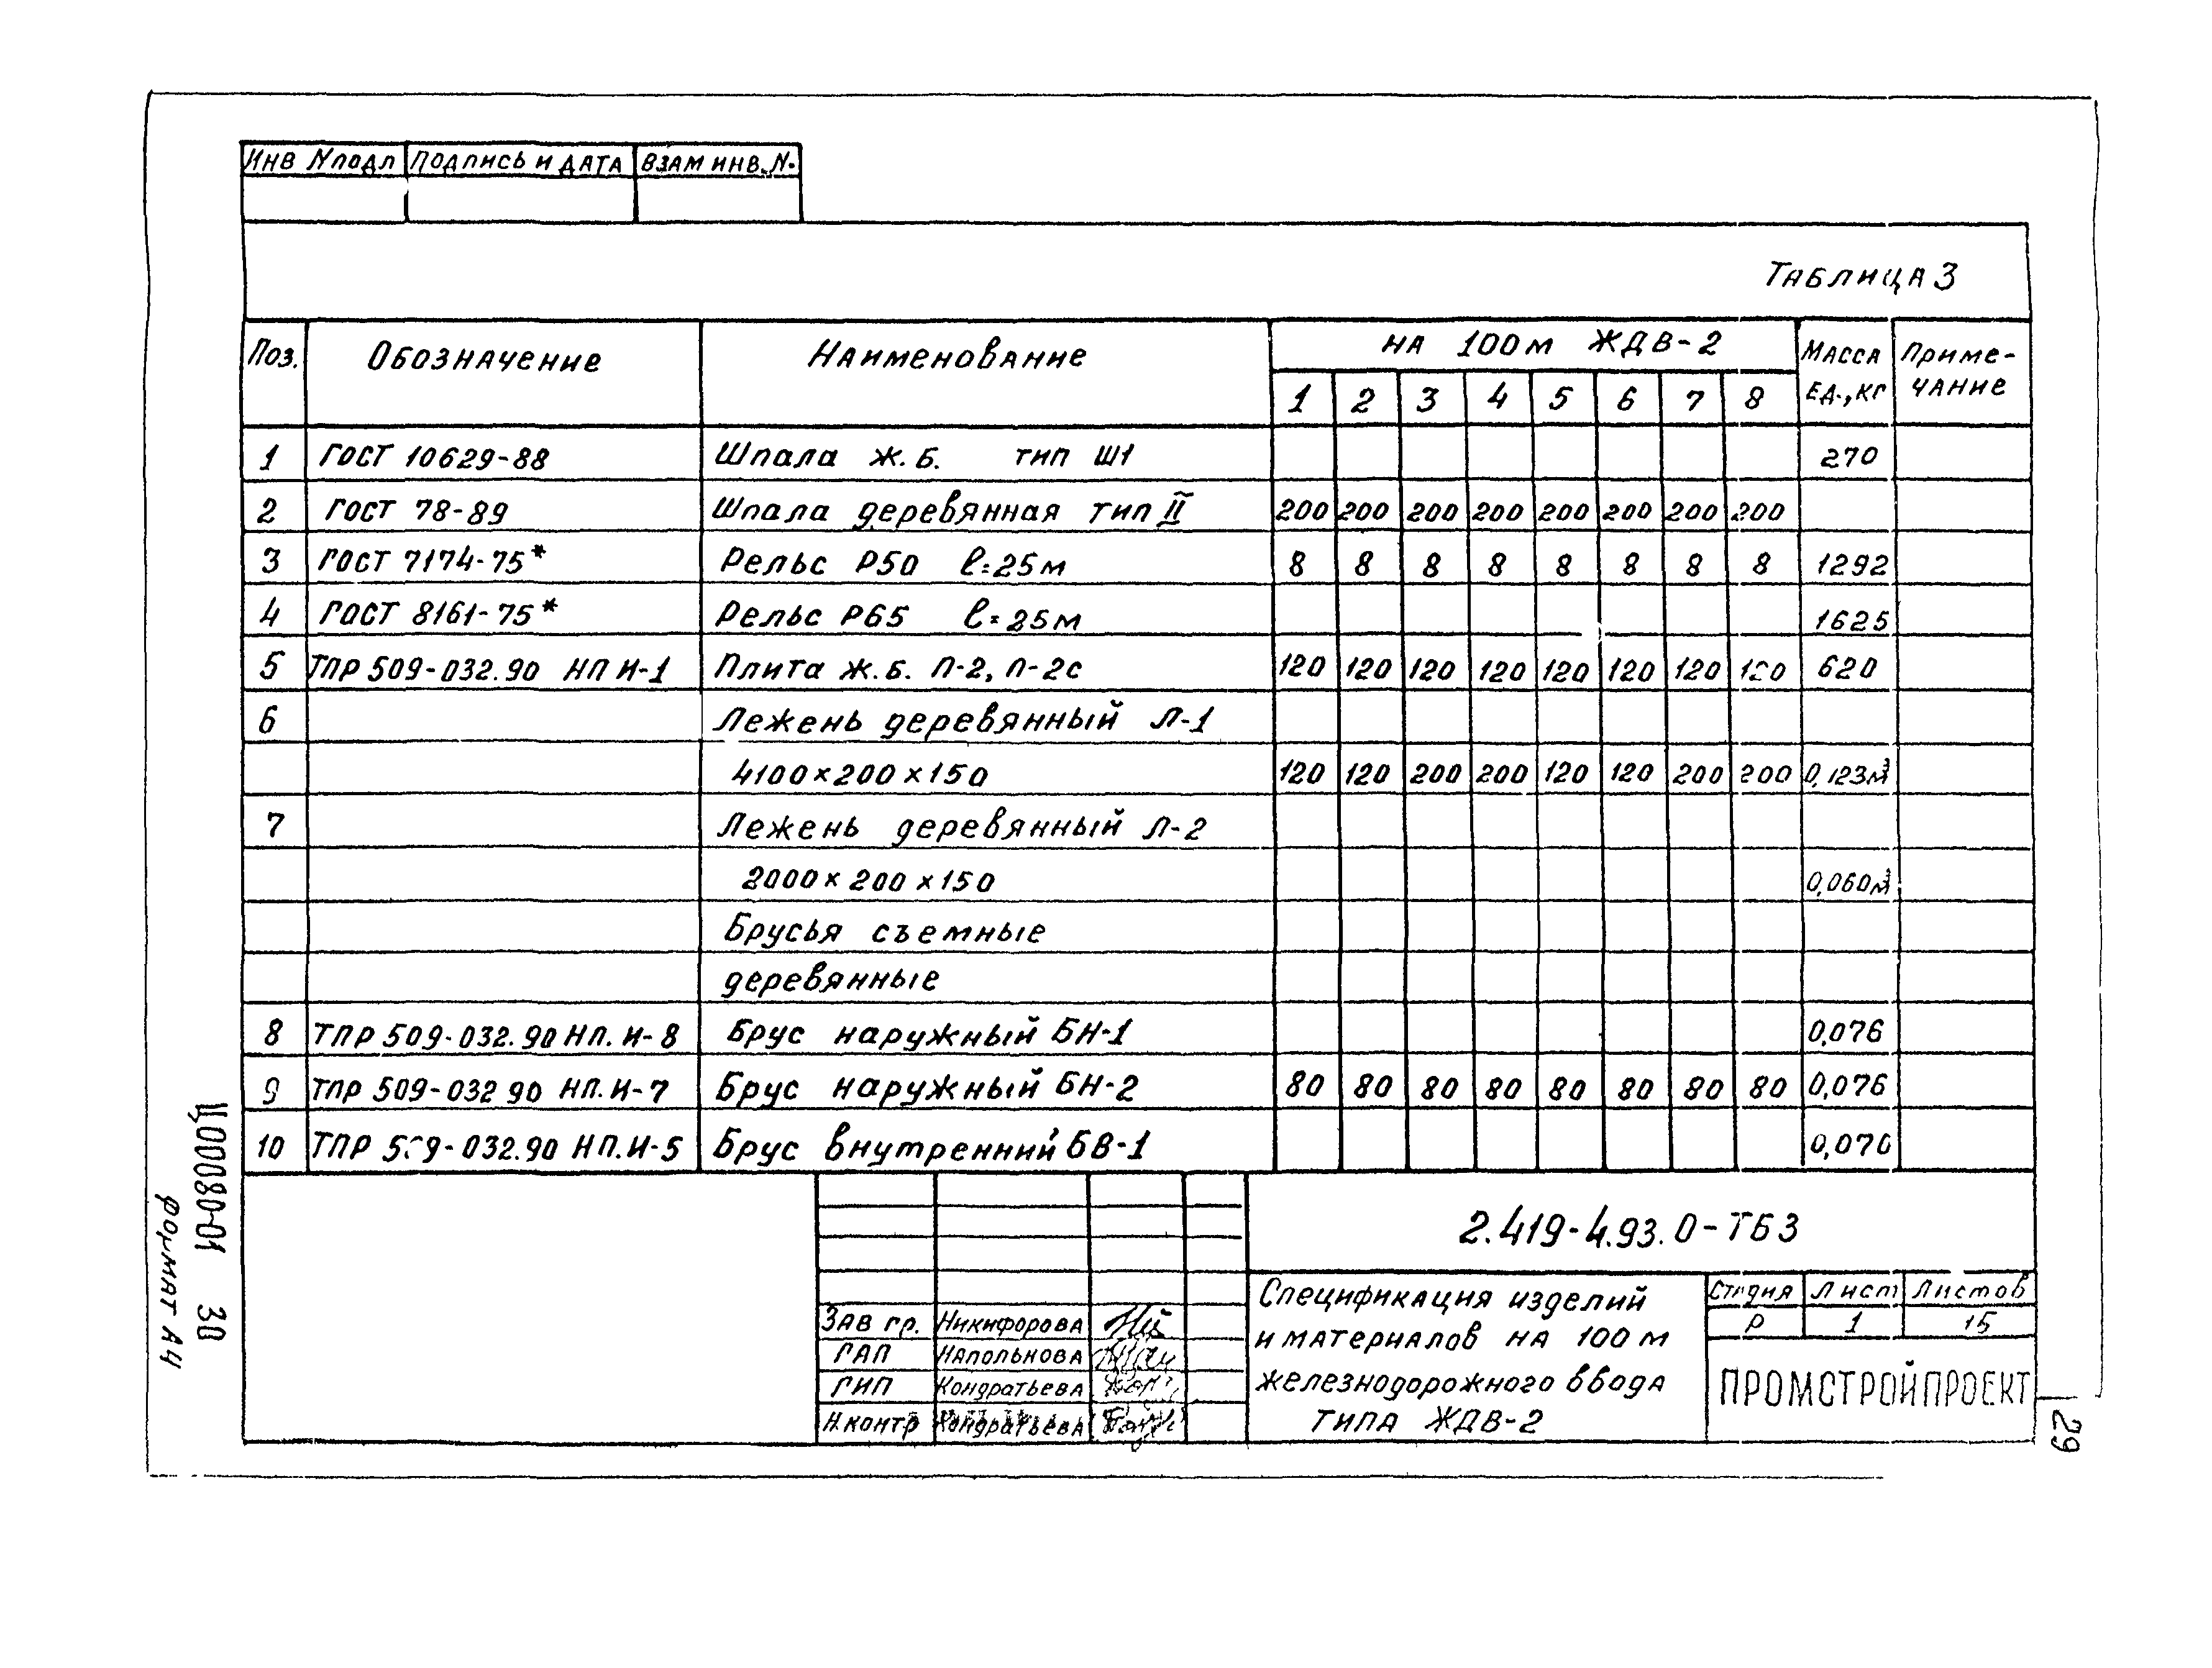 ИНВ №ПОДЛ ПОДПИСЬ И ДАТА ВЗАМ ИНВ. N.
ТАБЛИЦА 3
Поз. Обозначение Наименование НА 100м ЖДВ-2 МАССА ЕД., КГ ПРИМЕ-ЧАНИЕ
1 2 3 4 5 6 7 8
1 ГОСТ 10629-88 Шпала ж.б. тип Ш1 270
2 ГОСТ 78-89 Шпала деревянная тип II 200 200 200 200 200 200 200 200
3 ГОСТ 7174-75* Рельс Р50 ℓ=25м 8 8 8 8 8 8 8 8 1292
4 ГОСТ 8161-75* Рельс Р65 ℓ=25м 1625
5 ТПР 509-032.90 НП И-1 Плита ж.б. П-2, П-2с 120 120 120 120 120 120 120 120 620
6 Лежень деревянный Л-1
4100×200×150 120 120 200 200 120 120 200 200 0,123м³
7 Лежень деревянный Л-2
2000×200×150 0,060м³
Брусья съемные
деревянные
8 ТПР 509-032.90 НП. И-8 Брус наружный БН-1 0,076
9 ТПР 509-032 90 НП. И-7 Брус наружный БН-2 80 80 80 80 80 80 80 80 0,076
10 ТПР 509-032.90 НП. И-5 Брус внутренний БВ-1 0,070
2.419-4.93.0-ТБ3
Спецификация изделий
и материалов на 100 м
железнодорожного ввода
типа ЖДВ-2
Стадия Лист Листов
Р 1 15
ПРОМСТРОЙПРОЕКТ
ЗАВ гр. Никифорова
ГАП НАПОЛЬНОВА
ГИП Кондратьева
Н.контр Кондратьева
Ц00080-01 30
формат А4
29